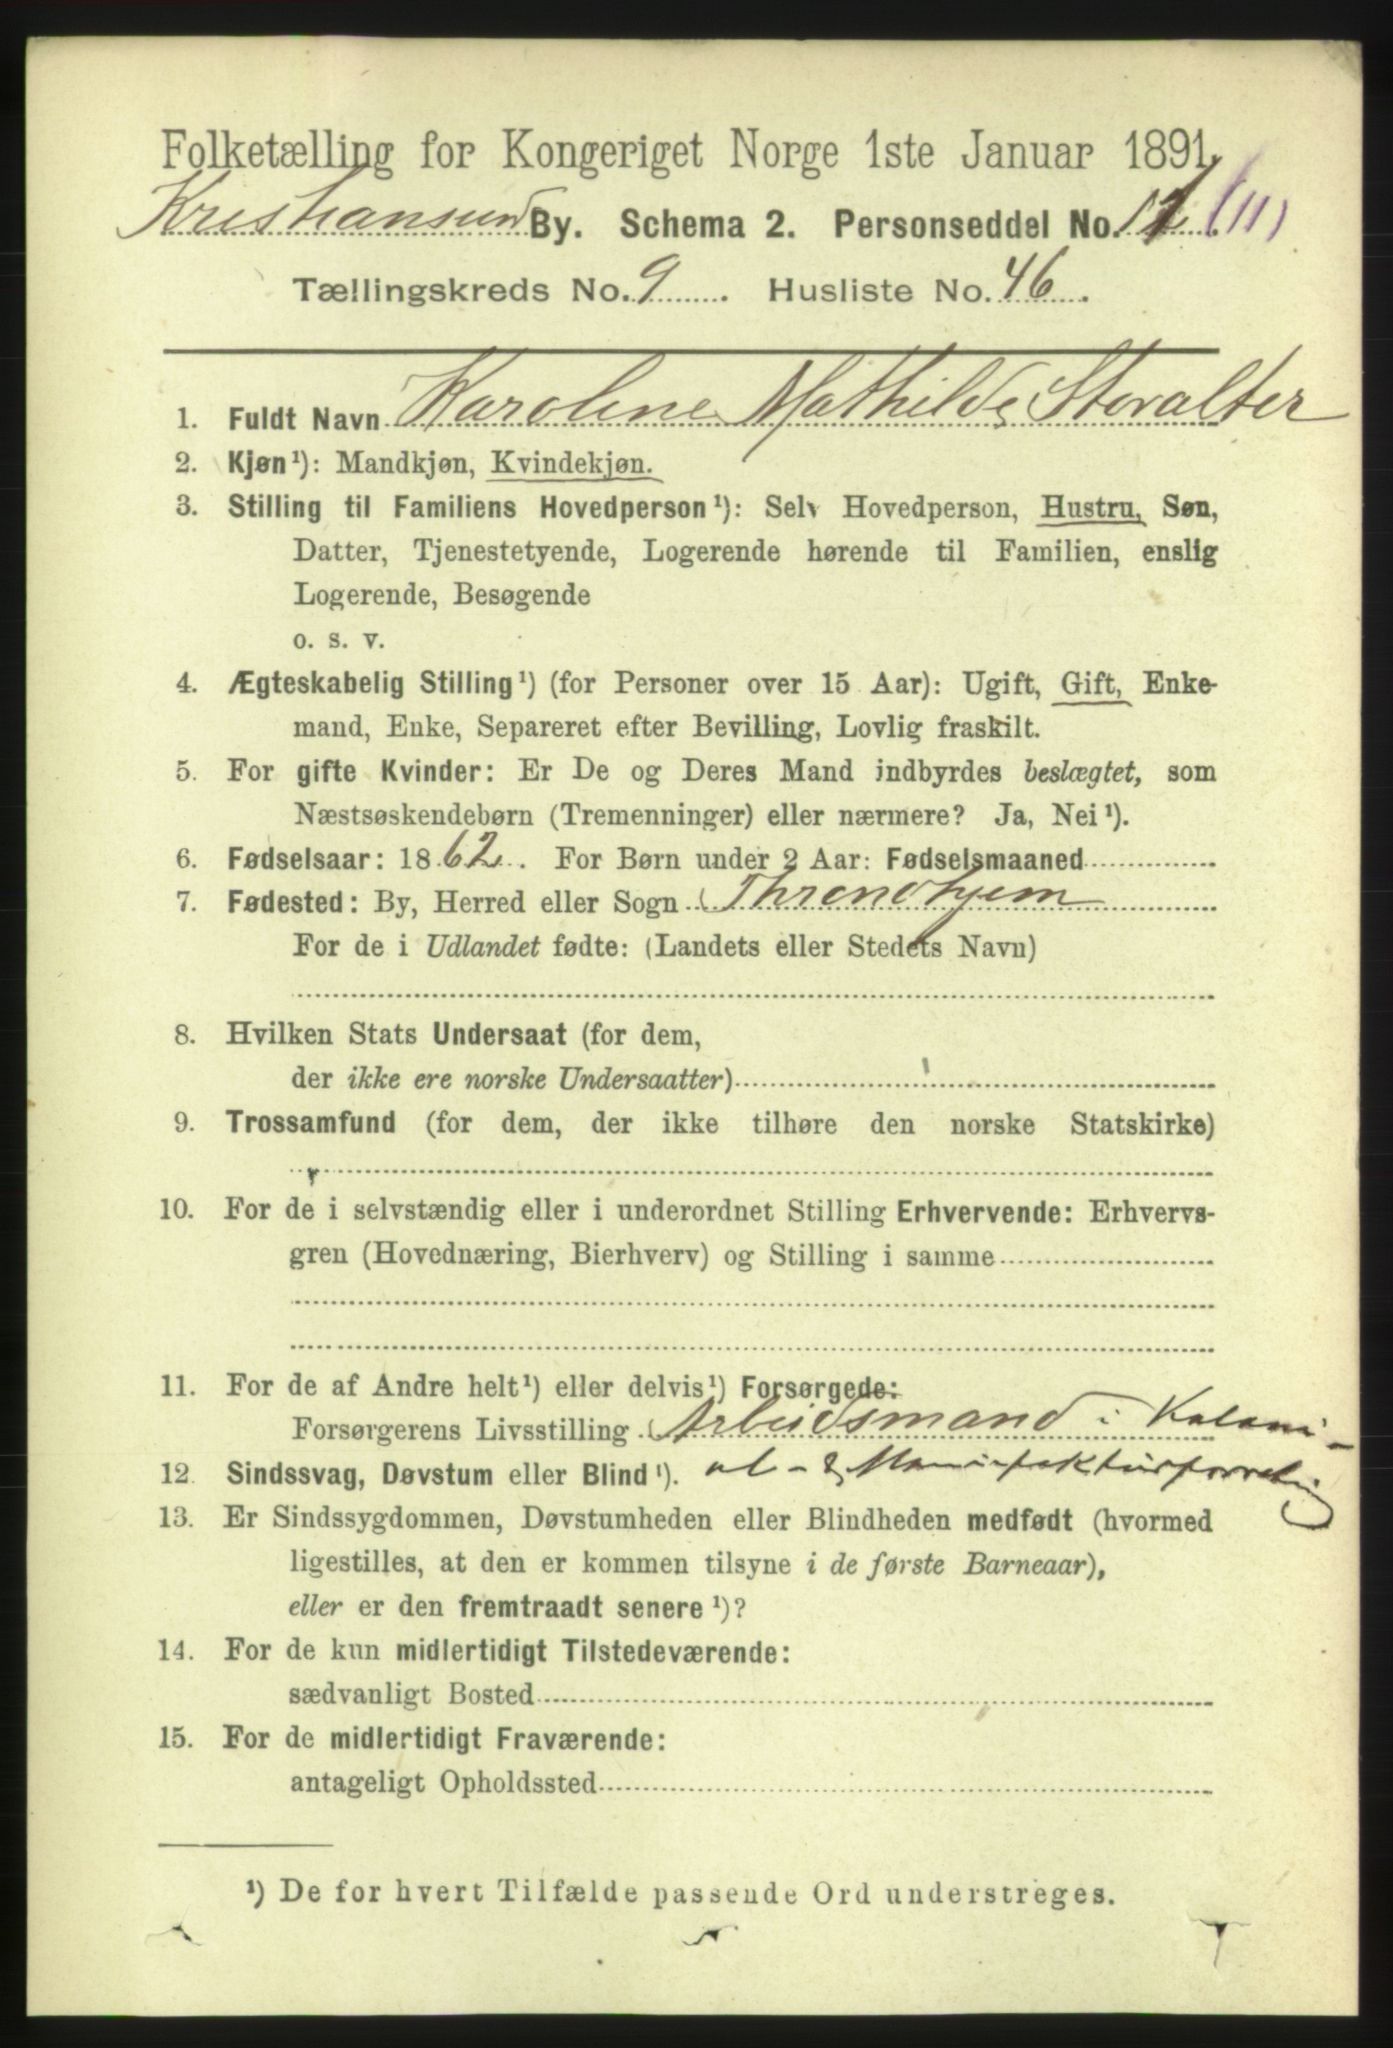 Folketælling for Kongeriget Norge 1ste Januar 1891.
Kristiansund By. Schema 2. Personseddel No. (11)
Tællingskreds No. 9. Husliste No. 46.
1. Fuldt Navn Karoline Mathilde Storalter
2. Kjøn¹): Mandkjøn, Kvindekjøn.
3. Stilling til Familiens Hovedperson¹): Selv Hovedperson, Hustru, Søn,
Datter, Tjenestetyende, Logerende hørende til Familien, enslig
Logerende, Besøgende
o. s. v.
4. Ægteskabelig Stilling¹) (for Personer over 15 Aar): Ugift, Gift, Enke-
mand, Enke, Separeret efter Bevilling, Lovlig fraskilt.
5. For gifte Kvinder: Er De og Deres Mand indbyrdes beslægtet, som
Næstsøskendebørn (Tremenninger) eller nærmere? Ja, Nei¹).
6. Fødselsaar: 1862. For Børn under 2 Aar: Fødselsmaaned
7. Fødested: By, Herred eller Sogn Throndhjem
For de i Udlandet fødte: (Landets eller Stedets Navn)
8. Hvilken Stats Undersaat (for dem,
der ikke ere norske Undersaatter)
9. Trossamfund (for dem, der ikke tilhøre den norske Statskirke)
10. For de i selvstændig eller i underordnet Stilling Erhvervende: Erhvervs-
gren (Hovednæring, Bierhverv) og Stilling i samme
11. For de af Andre helt¹) eller delvis¹) Forsørgede:
Forsørgerens Livsstilling Arbeidsmand i Koloni-
12. Sindssvag, Døvstum eller Blind¹). al- & Manufakturforretning
13. Er Sindssygdommen, Døvstumheden eller Blindheden medfødt (hvormed
ligestilles, at den er kommen tilsyne i de første Barneaar),
eller er den fremtraadt senere¹)?
14. For de kun midlertidigt Tilstedeværende:
sædvanligt Bosted
15. For de midlertidigt Fraværende:
antageligt Opholdssted
¹) De for hvert Tilfælde passende Ord understreges.